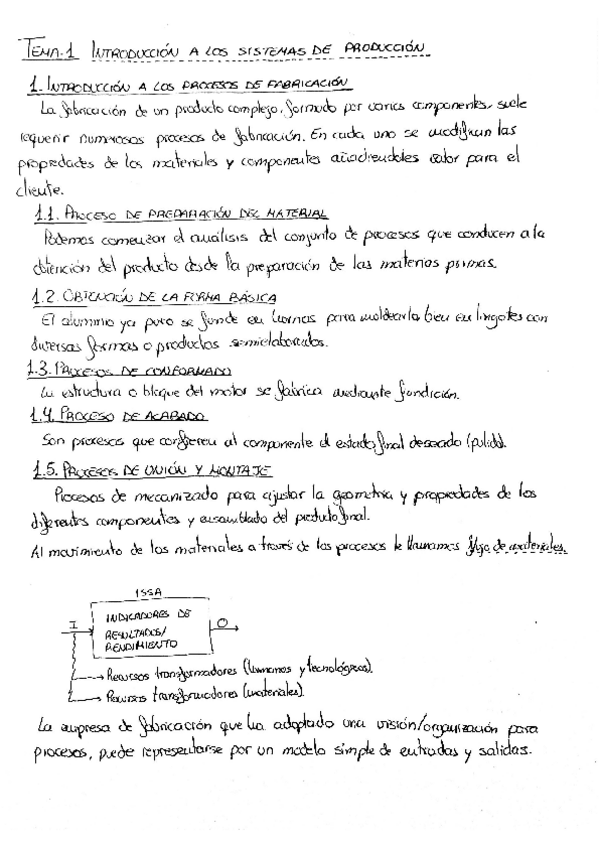 TEMA.1 INTRODUCCIÓN A LOS SISTEMAS DE PRODUCCIÓN
1. INTRODUCCIÓN A LOS PROCESOS DE FABRICACIÓN
La fabricación de un producto complejo, formado por varios componentes, suele
requerir numerosos procesos de fabricación. En cada uno se modifican las
propiedades de los materiales y componentes añadiendoles valor para el
cliente.
1.1. PROCESO DE PREPARACIÓN DEL MATERIAL
Podemos comenzar el análisis del conjunto de procesos que conducen a la
obtención del producto desde la preparación de las materias primas.
1.2. OBTENCIÓN DE LA FORMA BÁSICA
El aluminio ya puro se funde en hornos para moldearlo bien en lingotes con
diversas formas o productos semielaborados.
1.3. PROCESOS DE CONFORMADO
La estructura o bloque del motor se fabrica mediante fundición.
1.4. PROCESO DE ACABADO
Son procesos que confieren al componente el estado final deseado (pulido).
1.5. PROCESOS DE UNIÓN Y MONTAJE
Procesos de mecanizado para ajustar la geometría y propiedades de los
diferentes componentes y ensamblado del producto final.
Al movimiento de los materiales a través de los procesos le llamamos flujo de materiales.
ISSA
I
INDICADORES DE
RESULTADOS/
RENDIMIENTO
O
Recursos transformadores (humanos y tecnológicos).
Recursos transformadores (materiales).
La empresa de fabricación que ha adoptado una visión/organización para
procesos, puede representarse por un modelo simple de entradas y salidas.